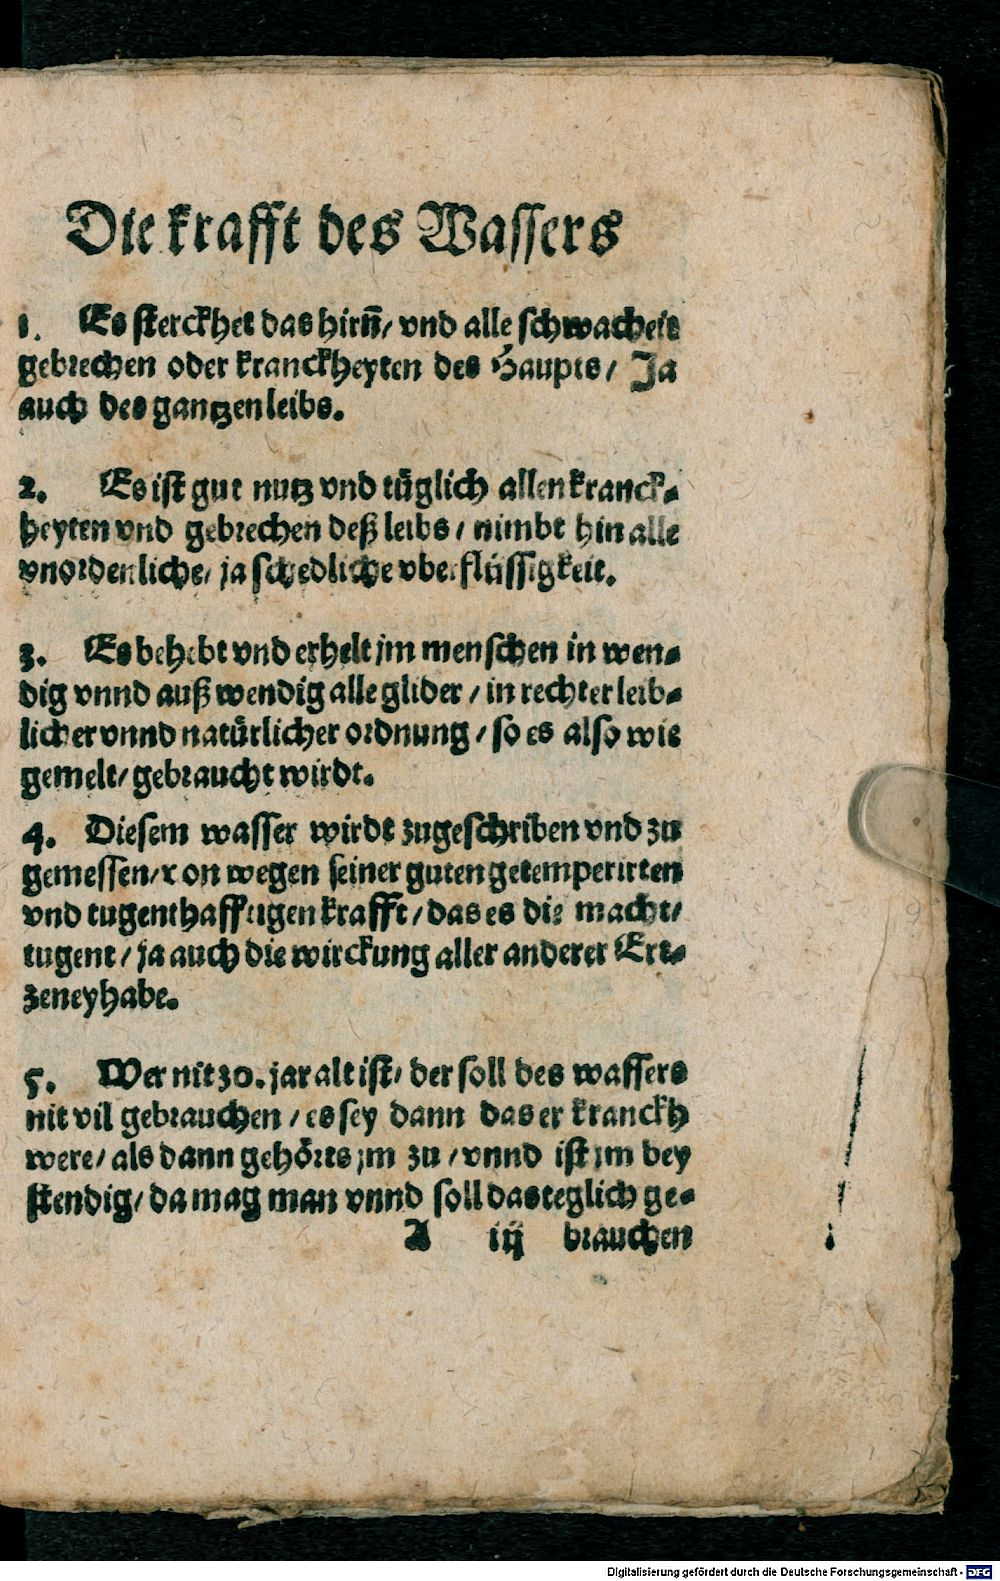 Die krafft des Wassers
1. Es sterckhet das hirn̄/ vnd alle schwacheit
gebrechen oder kranckheyten des Haupts/ Ja
auch des gantzen leibs.
2. Es ist gut nutz vnd tüglich allen kranck-
heyten vnd gebrechen deß leibs/ nimbt hin alle
vnordenliche/ ja schedliche vberflüssigkeit.
3. Es behebt vnd erhelt jm menschen in wen-
dig vnnd auß wendig alle glider/ in rechter leib-
licher vnnd natürlicher ordnung/ so es also wie
gemelt/ gebraucht wirdt.
4. Diesem wasser wirdt zugeschriben vnd zu
gemessen/ von wegen seiner guten getemperirten
vnd tugenthafftigen krafft/ das es die macht/
tugent/ ja auch die wirckung aller anderer Ert-
zeney habe.
5. Wer nit 30. jar alt ist/ der soll des wassers
nit vil gebrauchen/ es sey dann das er kranckh
were/ als dann gehörts jm zu/ vnnd ist jm bey
stendig/ da mag man vnnd soll das teglich ge-
A iij brauchen
Digitalisierung gefördert durch die Deutsche Forschungsgemeinschaft - DFG